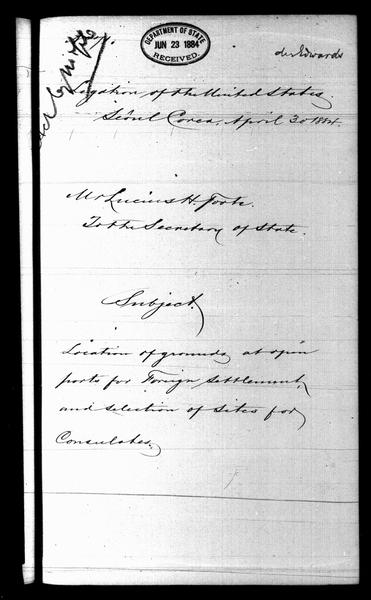 DEPARTMENT OF STATE
JUN 23 1884
RECEIVED.
Legation of the United States.
Séoul Corea, April 30 1884.
Mr Lucius H. Foote.
To the Secretary of State.
Subject.
Location of grounds, at open
ports for Foreign Settlement,
and selection of Sites for
Consulates.